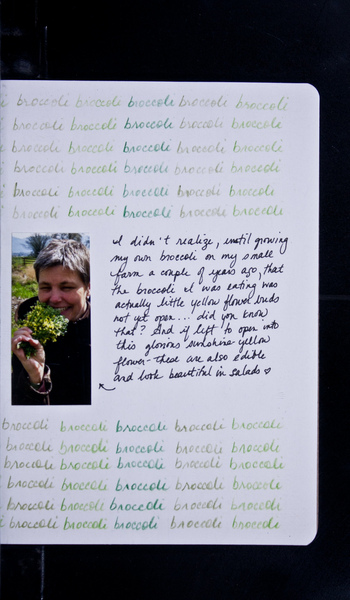 broccoli broccoli broccoli broccoli broccoli
broccoli broccoli broccoli broccoli broccoli
broccoli broccoli broccoli broccoli broccoli
broccoli broccoli broccoli broccoli broccoli
broccoli broccoli broccoli broccoli broccoli
broccoli broccoli broccoli broccoli broccoli
I didn't realize, until growing
my own broccoli on my small
farm a couple of years ago, that
the broccoli I was eating was
actually little yellow flower buds
not yet open... did you know
that? And if left to open into
this glorious sunshine yellow
flower - these are also edible
and look beautiful in salads ♡
broccoli broccoli broccoli broccoli broccoli
broccoli broccoli broccoli broccoli broccoli
broccoli broccoli broccoli broccoli broccoli
broccoli broccoli broccoli broccoli broccoli
broccoli broccoli broccoli broccoli broccoli
broccoli broccoli broccoli broccoli broccoli